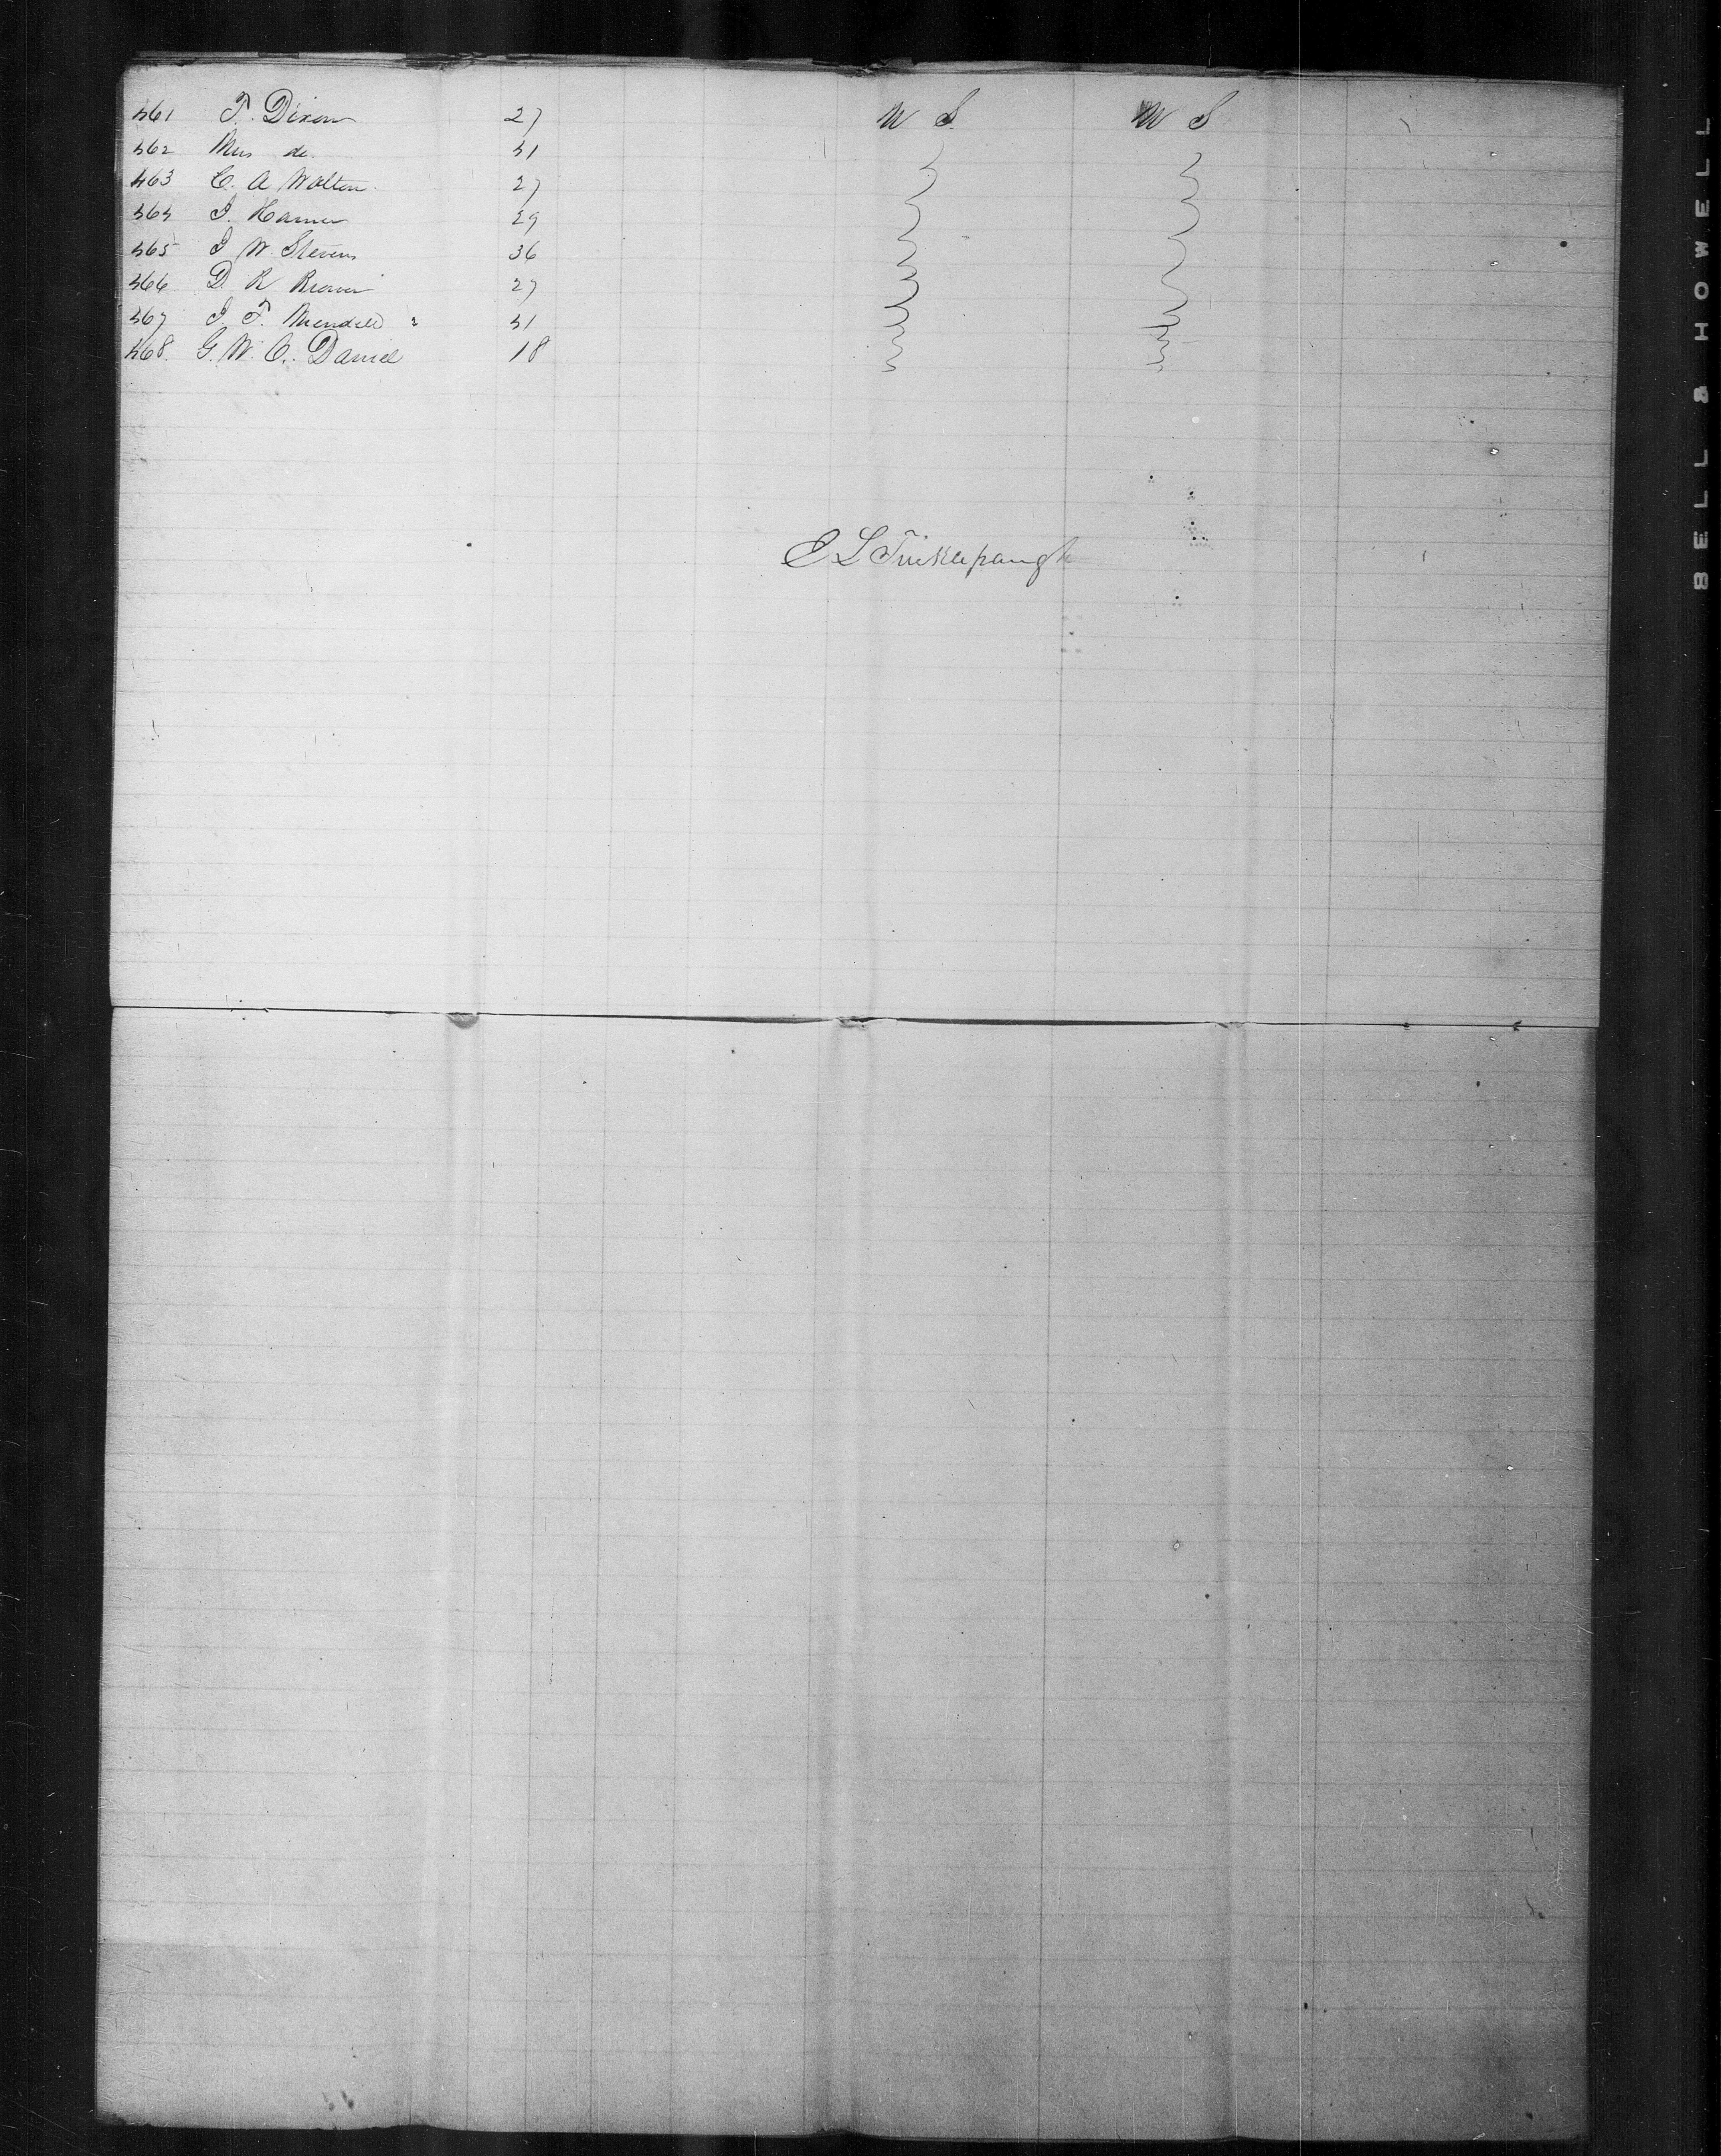 461 T. Dixon 27 U S. U S
462 Mrs do. 41
463 C. A Walton 27
464 J. Hamer 29
465 J W Stevens 36
466 D. R Brown 27
467 J. F. 41
468. G. W. O. Daniel 18
E L Tinklepaugh
BELL & HOWELL